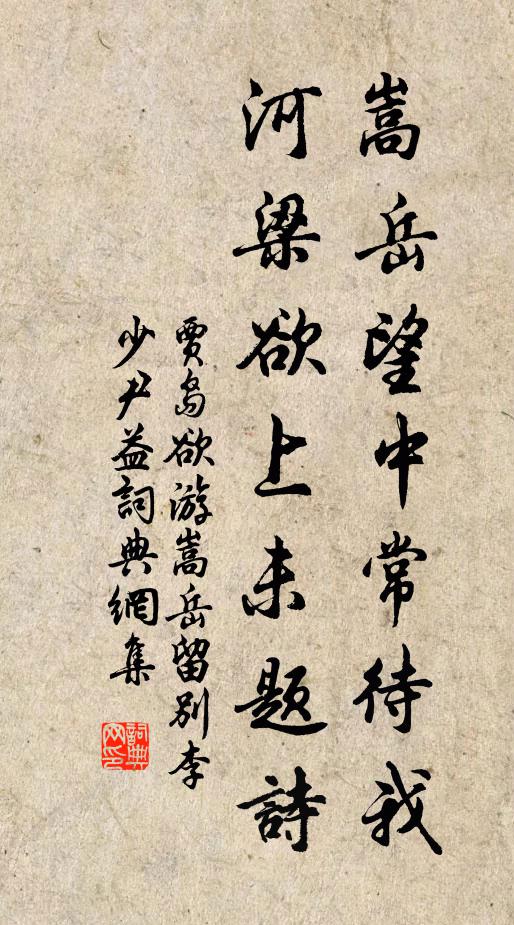 嵩岳望中常待我
河梁欲上未題詩
賈島欲游嵩岳留别李
少尹益詞典網集
詞典
网印